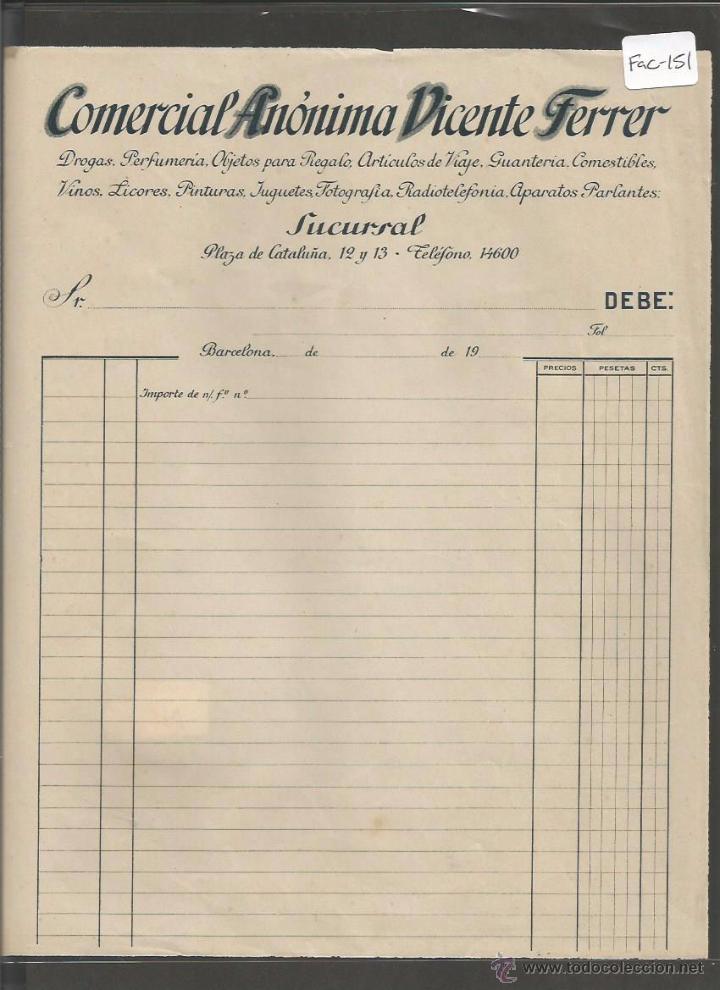 Fac-151
Comercial Anónima Vicente Ferrer
Drogas, Perfumería, Objetos para Regalo, Artículos de Viaje, Guantería, Comestibles,
Vinos, Licores, Pinturas, Juguetes, Fotografía, Radiotelefonía, Aparatos Parlantes:
Sucursal
Plaza de Cataluña, 12 y 13 - Teléfono, 14600
Sr. DEBE:
Fol
Barcelona, de de 19
PRECIOS PESETAS CTS.
Importe de n/. f.ª n.º
© www.todocoleccion.net